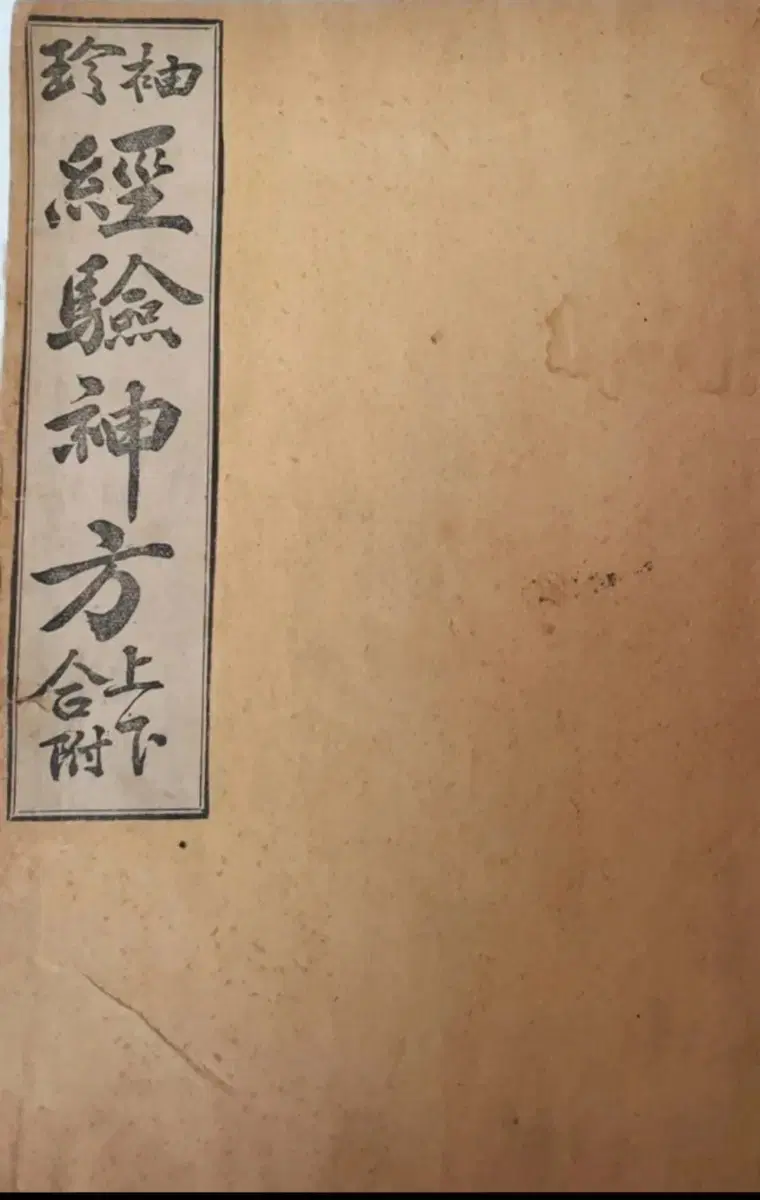 袖珍
經驗神方
上下
合附